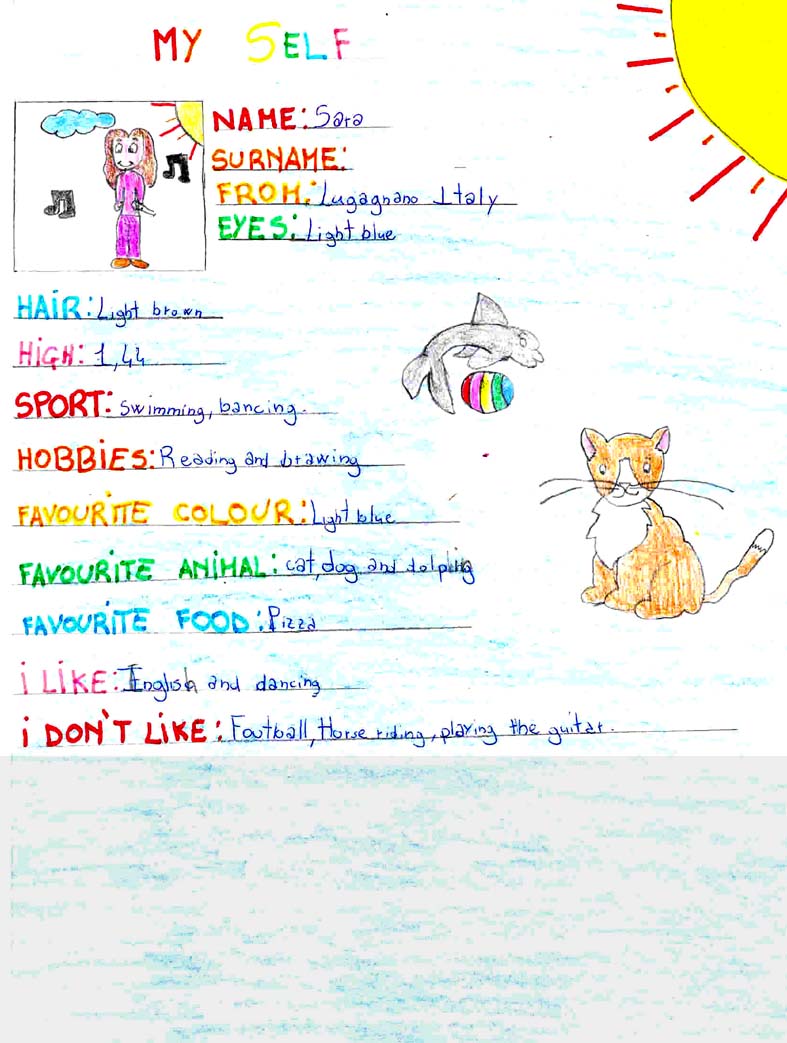 MY SELF
NAME: Sara
SURNAME:
FROM: Lugagnano Italy
EYES: Light blue
HAiR: Light brown
HiGH: 1,44
SPORT: swimming, bancing.
HOBBiES: Reading and brawing
FAVOURiTE COLOUR: Light blue
FAVOURiTE ANiMAL: cat, dog and dolphing
FAVOURiTE FOOD: Pizza
i LiKE: English and dancing
i DON'T LiKE: Football, Horse riding, playing the guitar.